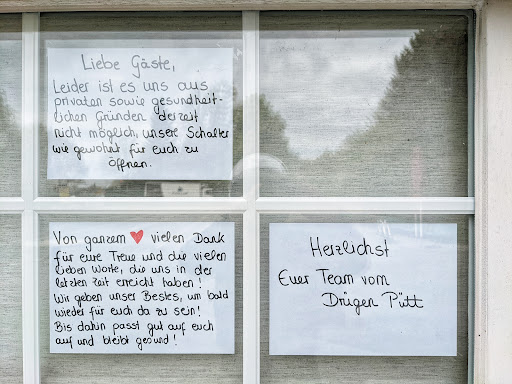 Liebe Gäste,
Leider ist es uns aus
privaten sowie gesundheit-
lichen Gründen derzeit
nicht möglich, unsere Schalter
wie gewohnt für euch zu
öffnen.
Von ganzem ♥ vielen Dank
für eure Treue und die vielen
lieben Worte, die uns in der
letzten Zeit erreicht haben!
Wir geben unser Bestes, um bald
wieder für euch da zu sein!
Bis dahin passt gut auf euch
auf und bleibt gesund!
Herzlichst
Euer Team vom
Drügen Pütt